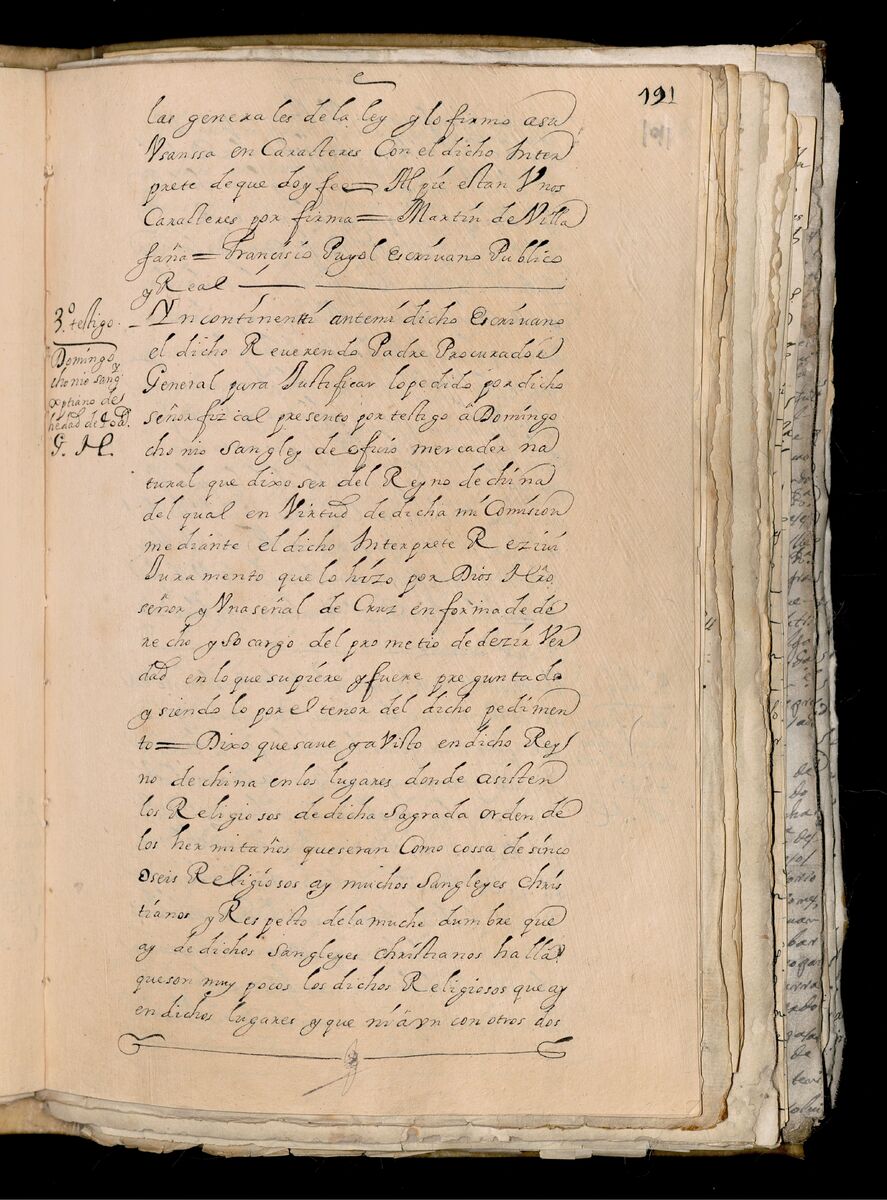 191
las generales de la ley y lo firmo a su
Vsanssa en Caracteres Con el dicho Inter
prete de que doy fee = Al pie estan Vnos
Caracteres por firma = Martin de Villa
faña = Francisco Puyol escrivano Publico
y Real
3.º testigo.
Domingo
chonio sang
y
xptiano de
hedad de
G. H.
Yn continentti ante mi dicho escrivano
el dicho Reverendo Padre Procurador
General para Justificar lo pedido por dicho
señor fizcal presento por testigo â Domingo
chonio sangley de ofiio mercader na
tural que dixo ser del Reyno de china
del qual en Virtud de dicha mi Comision
mediante el dicho Interprete Reziui
Juramento que lo hizo por Dios Nrõ
señor y Vna señal de Cruz en forma de de
recho y so cargo del prometio de dezir Ver
dad en lo que supiere y fuere preguntado
y siendo lo por el tenor del dicho pedimen
to = Dixo que save y a Visto en dicho Rey
no de china en los lugares donde asisten
los Religiosos de dicha Sagrada orden de
los hermitaños que seran Como cossa de sinco
o seis Religiosos ay muchos Sangleyes chris
tianos y Respecto de la muchedumbre que
ay de dichos sangleyes christianos halla
que son muy pocos los dichos Religiosos que ay
en dichos lugares y que ni avn con otros dos